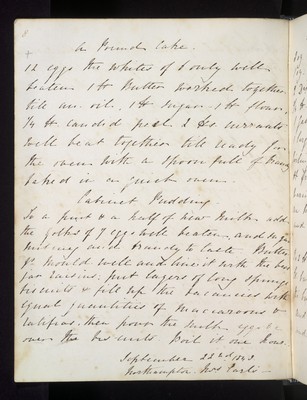 A Pound Cake.
12 eggs the Whites of 6 only well
beaten 1 lb Butter worked together
till an oil, 1 lb Sugar 1 lb flour,
3/4 lb candied peel 2 lbs currants
well beat together till ready for
the oven with a spoon full of Brandy
baked in a quick oven.
Cabinet Pudding.
To a pint & a half of new Milk add
the yolks of 9 eggs well beaten, and sugar
nutmeg and Brandy to taste Butter
yr mould well and line it with the best
jar raisins, put layers of long sponge
biscuits & fill up the vacancies with
equal quantities of maccaroons &
ratifias, then pour the milk eggs &c
over the biscuits Boil it one hour.
September 22nd 1843
Northampton Mrs